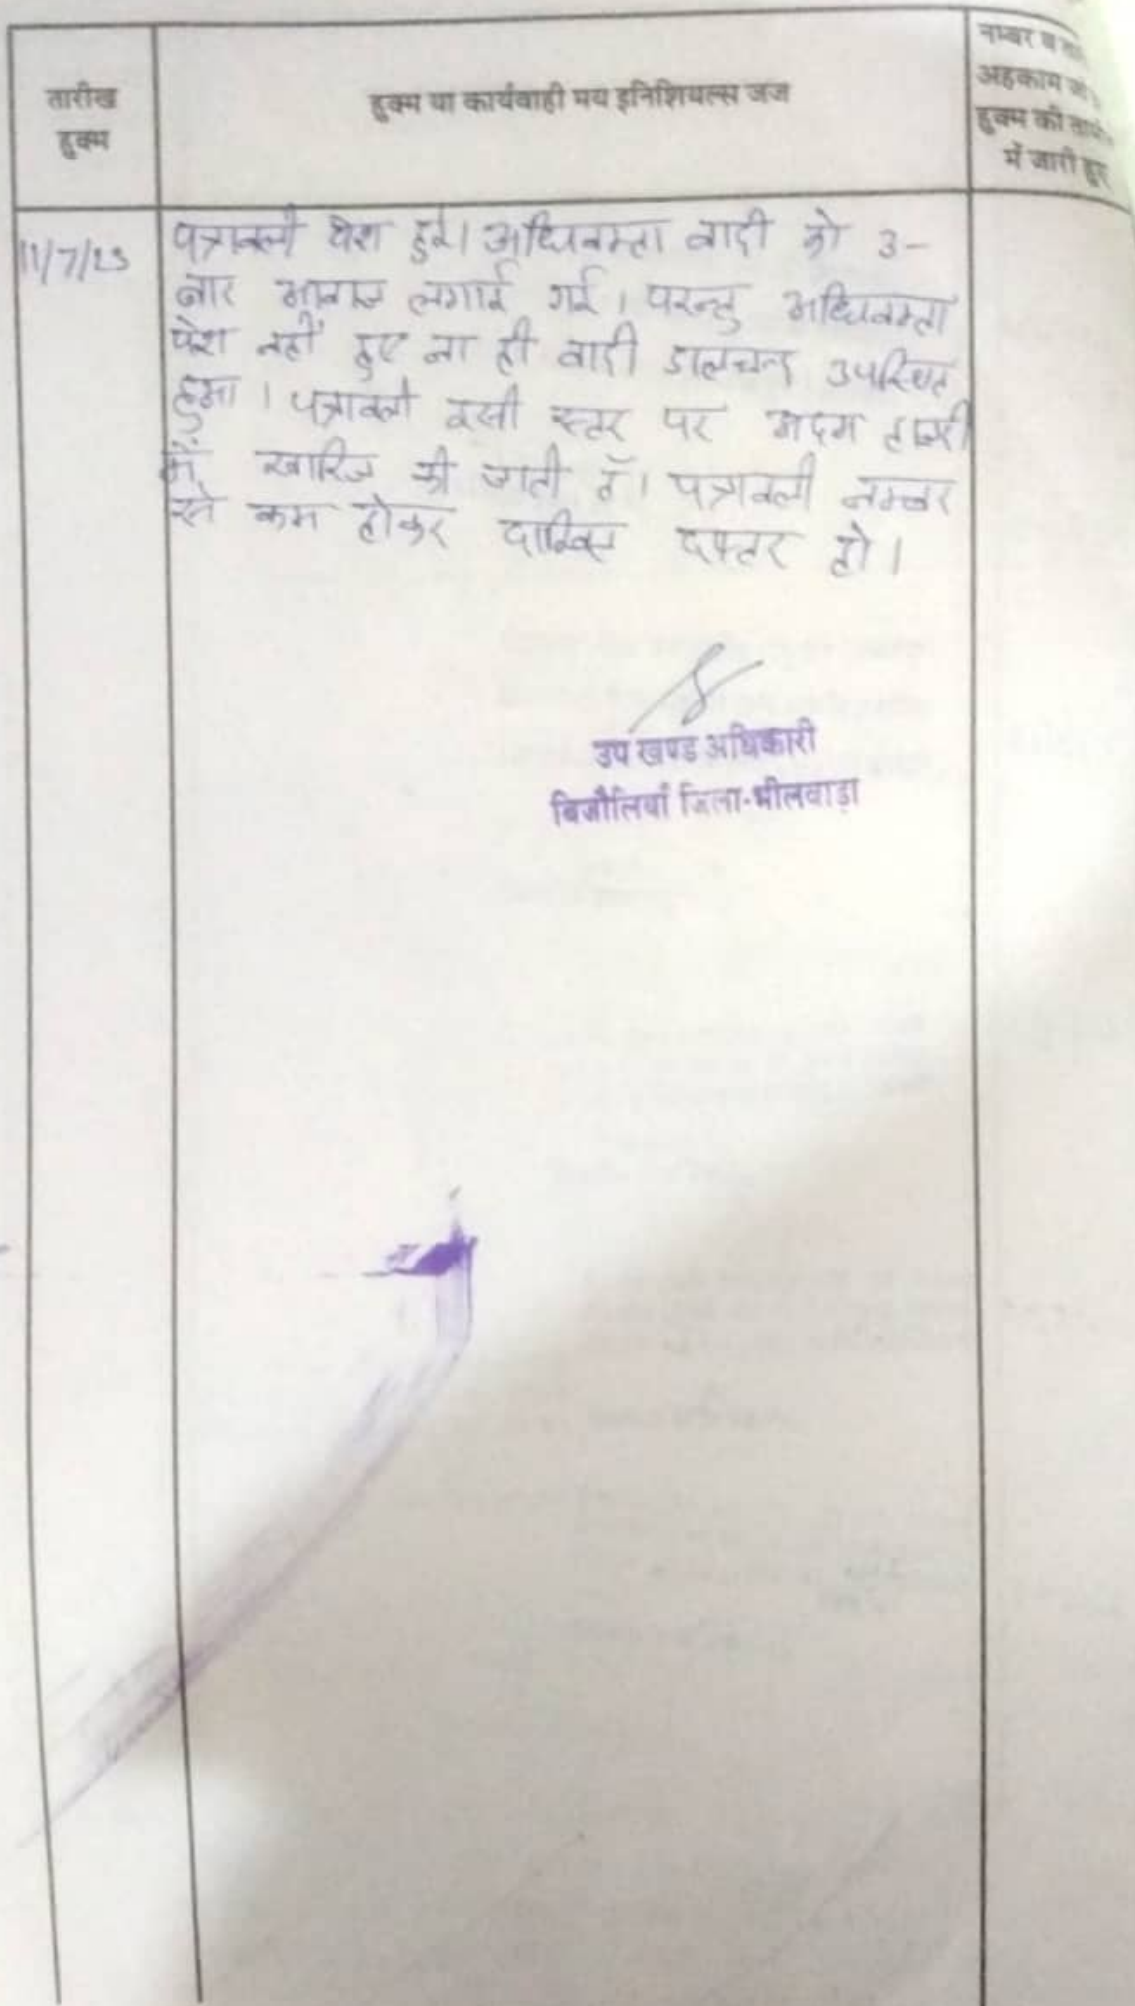 तारीख
हुक्म
हुक्म या कार्यवाही मय इनिशियल्स जज
नम्बर व
अहकाम जो
हुक्म की
में जारी हुए
11/7/23
पत्रावली पेश हुई। अधिवक्ता वादी को 3-
बार आवाज लगाई गई। परन्तु अधिवक्ता
पेश नहीं हुए ना ही वादी डालचन्द उपस्थित
हुआ। पत्रावली इसी स्तर पर अदम हाजरी
में खारिज की जाती है। पत्रावली नम्बर
से कम होकर दाखिल दफ्तर हो।
उप खण्ड अधिकारी
बिजौलियाँ जिला-भीलवाड़ा